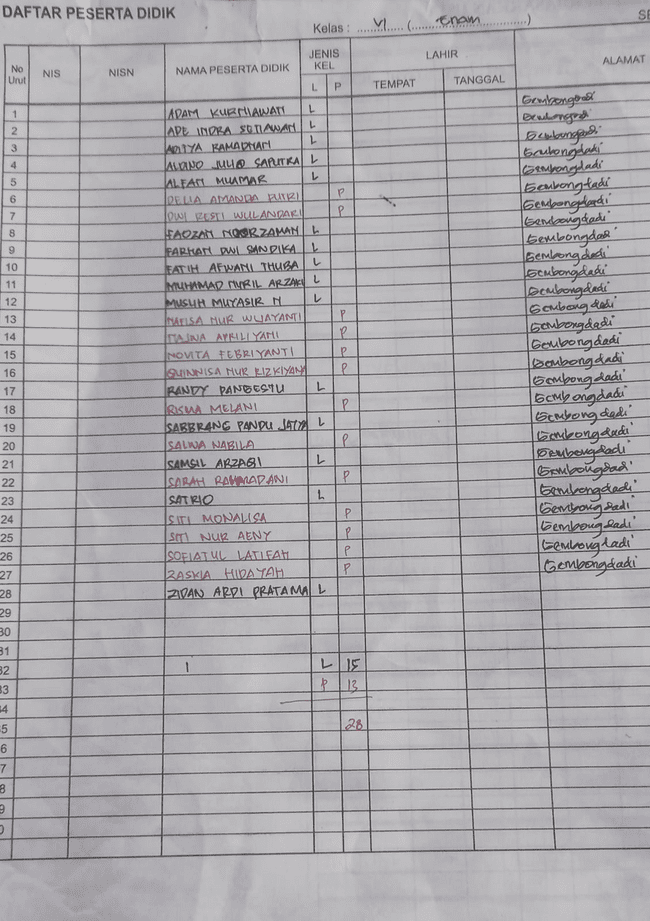 DAFTAR PESERTA DIDIK
Kelas : VI ( Enam )
No Urut NIS NISN NAMA PESERTA DIDIK JENIS KEL LAHIR ALAMAT
L P TEMPAT TANGGAL
1 ADAM KURNIAWAN L Gembongdadi
2 ADE INDRA SETIAWAN L Gembongdadi
3 ADITYA RAMADHAN L Gembongdadi
4 ALDINO JULIO SAPUTRA L Gembongdadi
5 ALFAN MUAMAR L Gembongdadi
6 DELIA AMANDA PUTRI P Gembongdadi
7 DWI RESTI WULANDARI P Gembongdadi
8 FAOZAN NOORZAMAN L Gembongdadi
9 FARHAN DWI SANDIKA L Gembongdadi
10 FATIH AFWANI THUBA L Gembongdadi
11 MUHAMAD NURIL ARZAKI L Gembongdadi
12 MUSLIH MUYASIR N L Gembongdadi
13 NAFISA NUR WIJAYANTI P Gembongdadi
14 NAJWA APRILIYANI P Gembongdadi
15 NOVITA FEBRIYANTI P Gembongdadi
16 QUINNISA NUR RIZKIYANA P Gembongdadi
17 RANDY PANGESTU L Gembongdadi
18 RISMA MELANI P Gembongdadi
19 SABBRANG PANDU JATYA L Gembongdadi
20 SALWA NABILA P Gembongdadi
21 SAMSIL ARZAQI L Gembongdadi
22 SARAH RAMADANI P Gembongdadi
23 SATRIO L Gembongdadi
24 SITI MONALISA P Gembongdadi
25 SITI NUR AENY P Gembongdadi
26 SOFIATUL LATIFAH P Gembongdadi
27 ZASKIA HIDAYAH P Gembongdadi
28 ZIDAN ARDI PRATAMA L
29
30
31
32 L 15
33 P 13
34
35 28
6
7
8
9
0